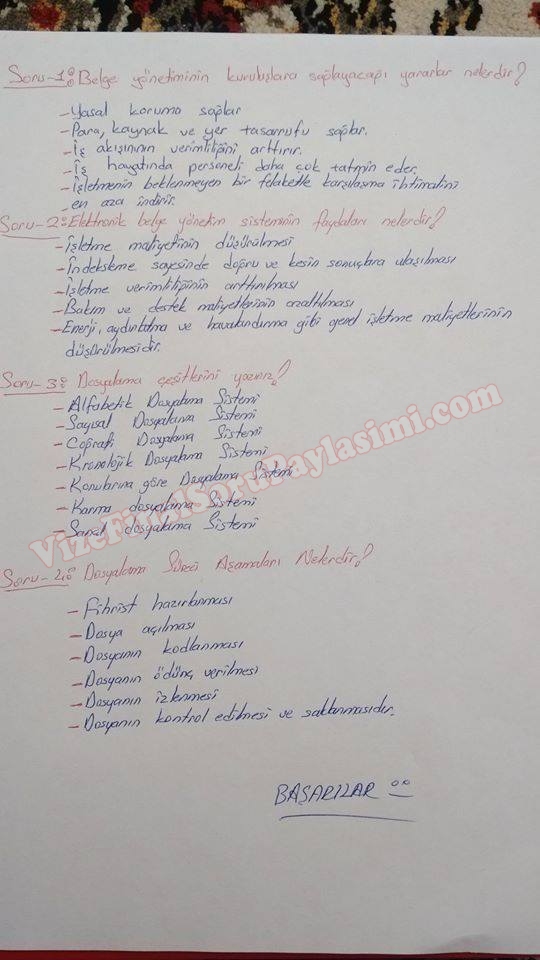 Soru-1: Belge yönetiminin kuruluşlara sağlayacağı yararlar nelerdir?
- Yasal koruma sağlar
- Para, kaynak ve yer tasarrufu sağlar.
- İş akışının verimliliğini arttırır.
- İş hayatında personeli daha çok tatmin eder.
- İşletmenin beklenmeyen bir felaketle karşılaşma ihtimalini
en aza indirir.
Soru-2: Elektronik belge yönetim sisteminin faydaları nelerdir?
- İşletme maliyetinin düşürülmesi
- İndeksleme sayesinde doğru ve kesin sonuçlara ulaşılması
- İşletme verimliliğinin arttırılması
- Bakım ve destek maliyetlerinin azaltılması
- Enerji, aydınlatma ve havalandırma gibi genel işletme maliyetlerinin
düşürülmesidir.
Soru-3: Dosyalama çeşitlerini yazınız?
- Alfabetik Dosyalama Sistemi
- Sayısal Dosyalama Sistemi
- Coğrafi Dosyalama Sistemi
- Kronolojik Dosyalama Sistemi
- Konularına göre Dosyalama Sistemi
- Karma dosyalama Sistemi
- Sanal dosyalama Sistemi
VizeFinalSoruPaylasimi.com
Soru-4: Dosyalama Süreci Aşamaları Nelerdir?
- Fihrist hazırlanması
- Dosya açılması
- Dosyanın kodlanması
- Dosyanın ödünç verilmesi
- Dosyanın izlenmesi
- Dosyanın kontrol edilmesi ve saklanmasıdır.
BAŞARILAR